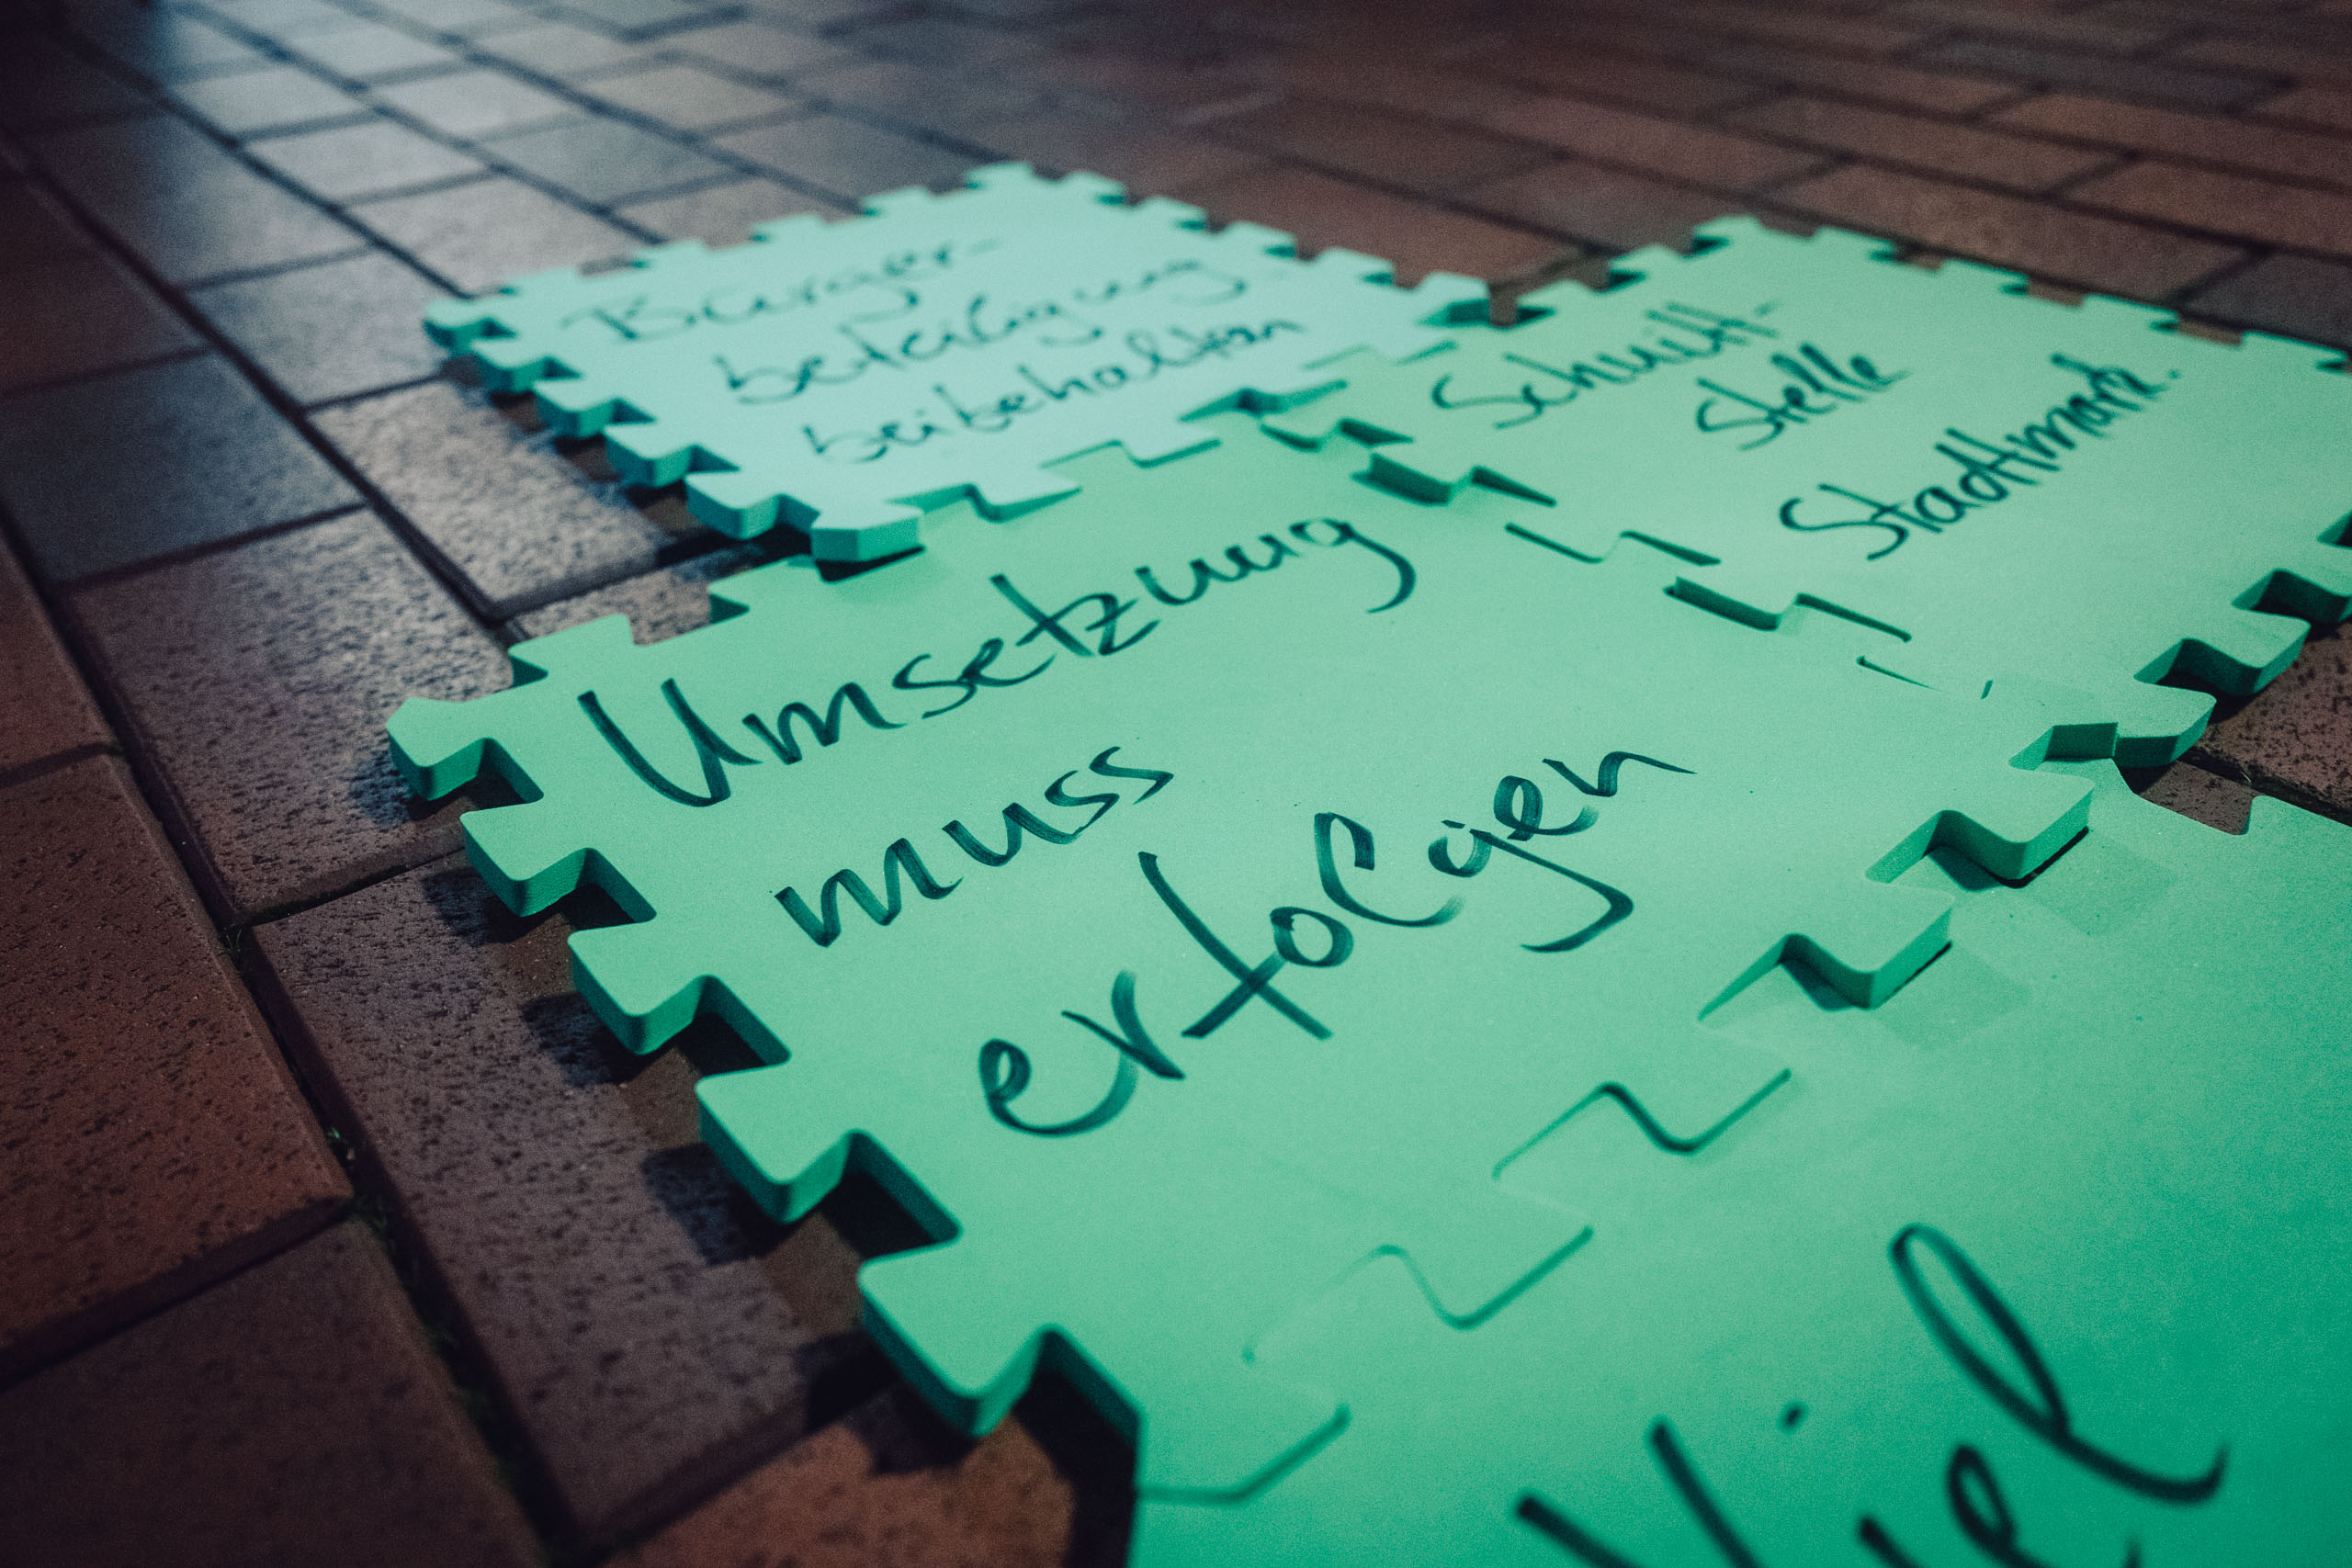 Bürger-
beteiligung
beibehalten
Schnitt-
stelle
Stadtmark.
Umsetzung
muss
erfolgen
Viel